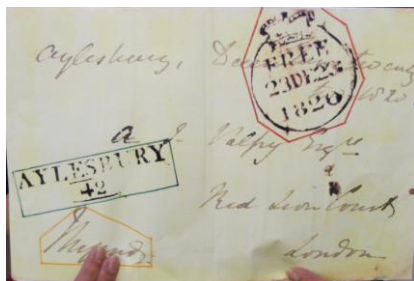 Aylesbury, December twenty
FREE
23DE23
1820
1820
A J Valpy Esqre
AYLESBURY
42
Red Lion Court
London